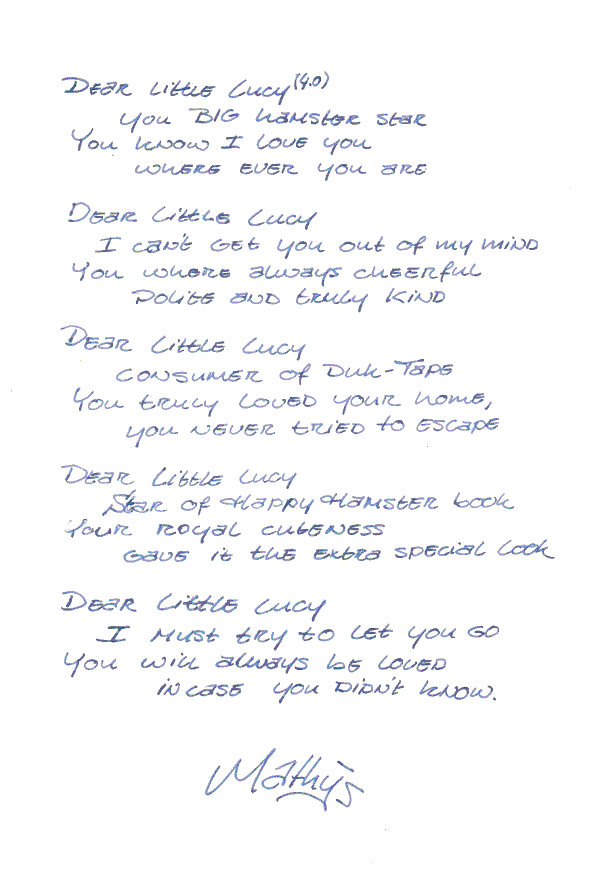 Dear Little Lucy (4.0)
You BIG Hamster star
You know I love you
where ever you are
Dear Little Lucy
I can't get you out of my mind
You where always cheerful
Polite and truly kind
Dear Little Lucy
Consumer of Duk-Tape
You truly loved your home,
you never tried to escape
Dear Little Lucy
Star of Happy Hamster book
Your royal cuteness
Gave it the extra special look
Dear Little Lucy
I must try to let you go
You will always be loved
in case you didn't know.
Mathijs